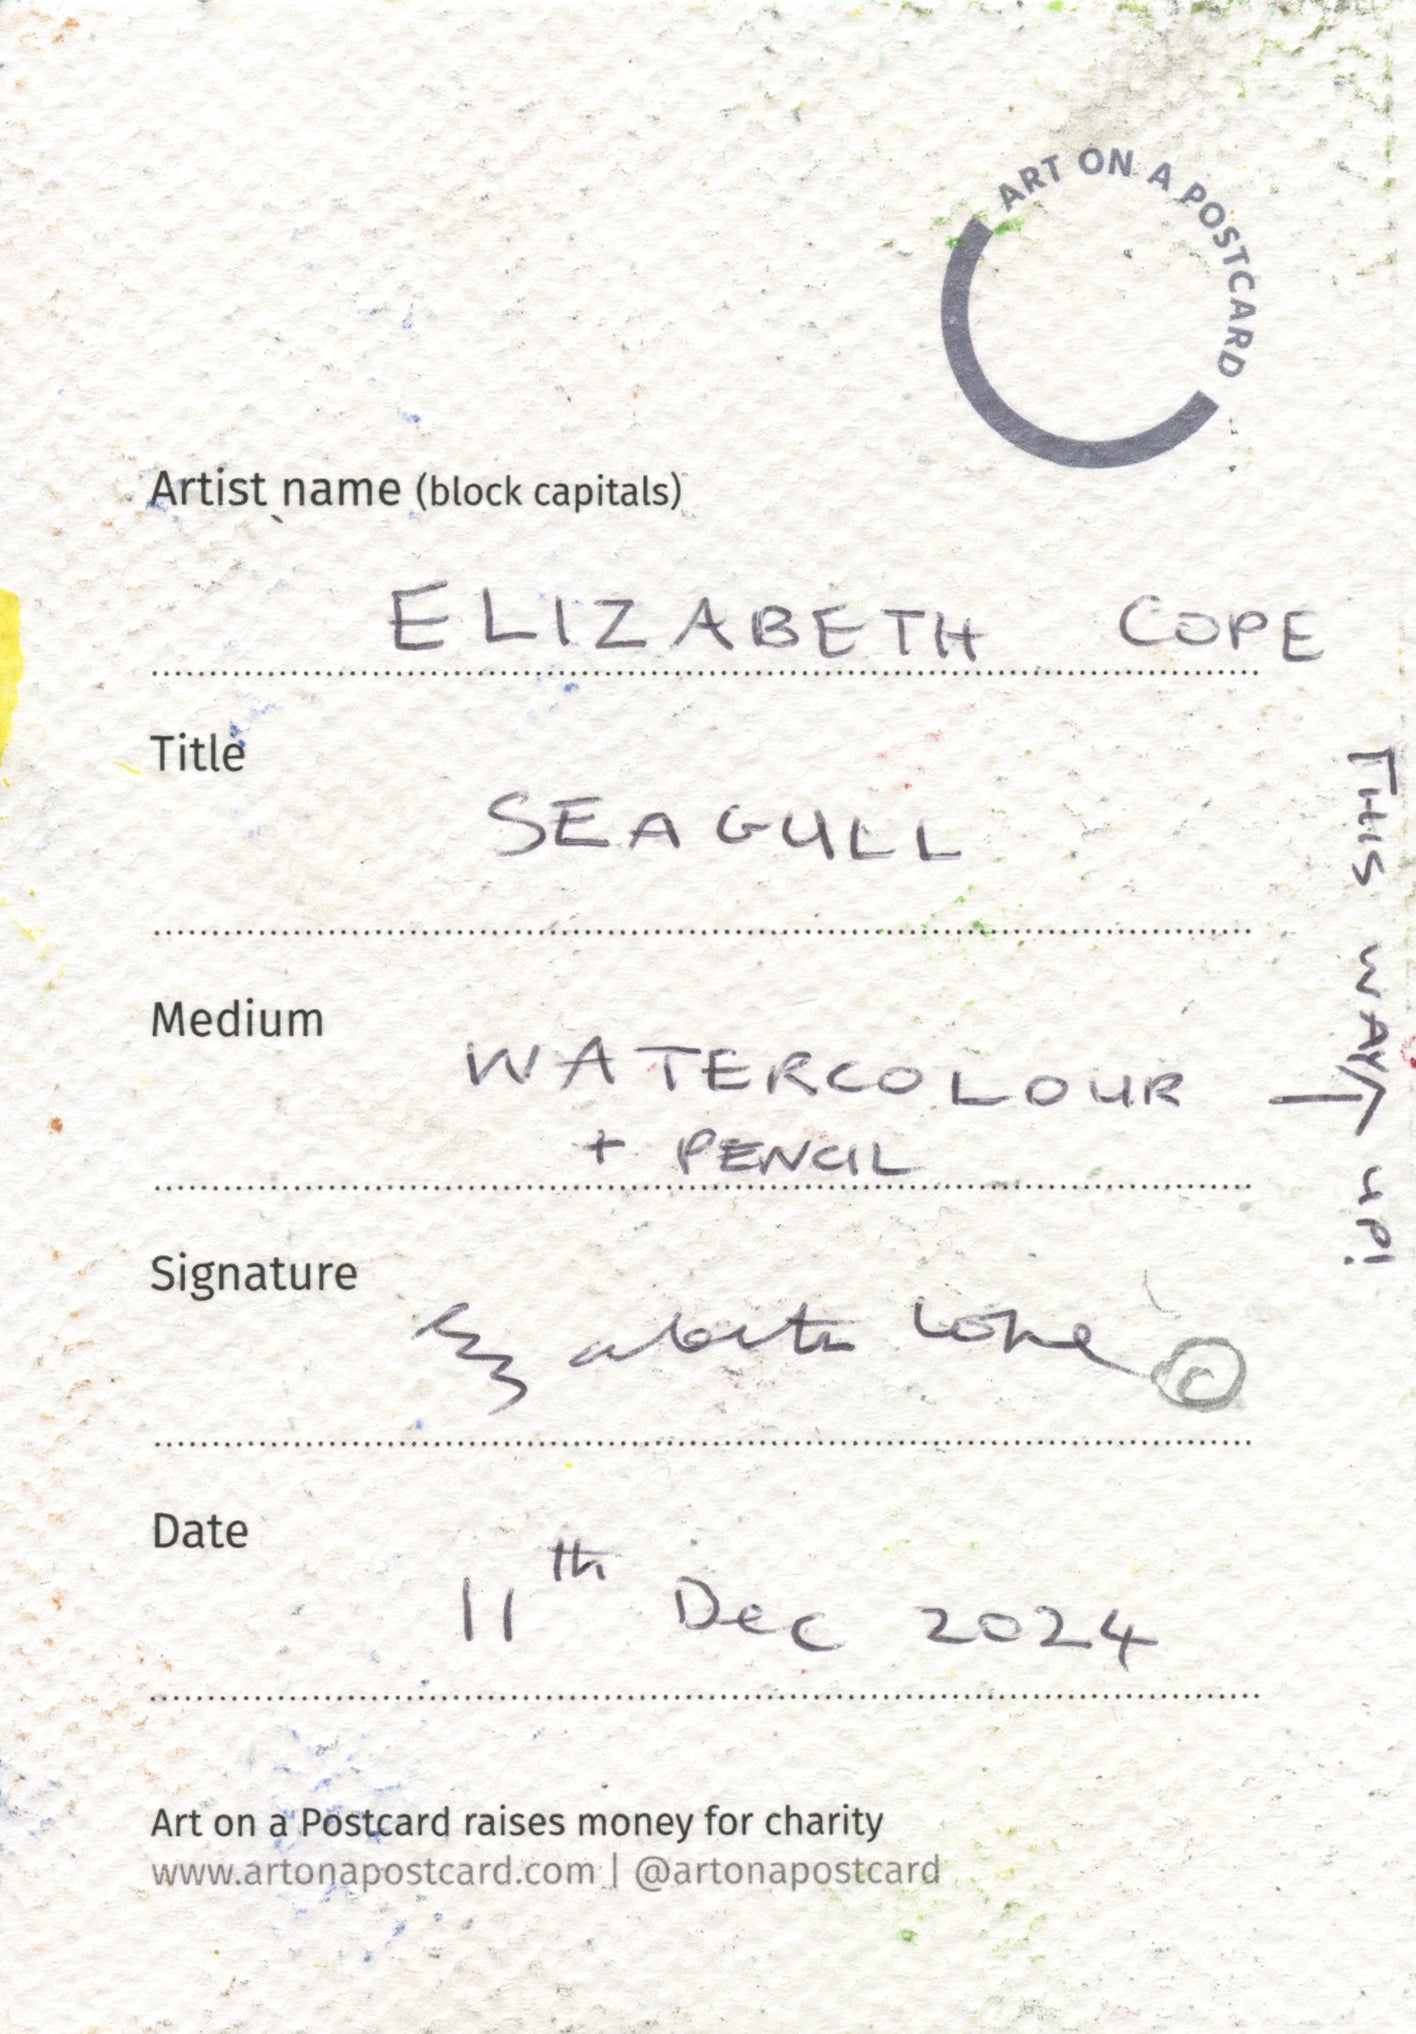 ART ON A POSTCARD
Artist name (block capitals)
ELIZABETH COPE
Title
SEAGULL
Medium
WATERCOLOUR
+ PENCIL
THIS WAY UP!
→
Signature
Elizabeth Cope
©
Date
11th Dec 2024
Art on a Postcard raises money for charity
www.artonapostcard.com | @artonapostcard